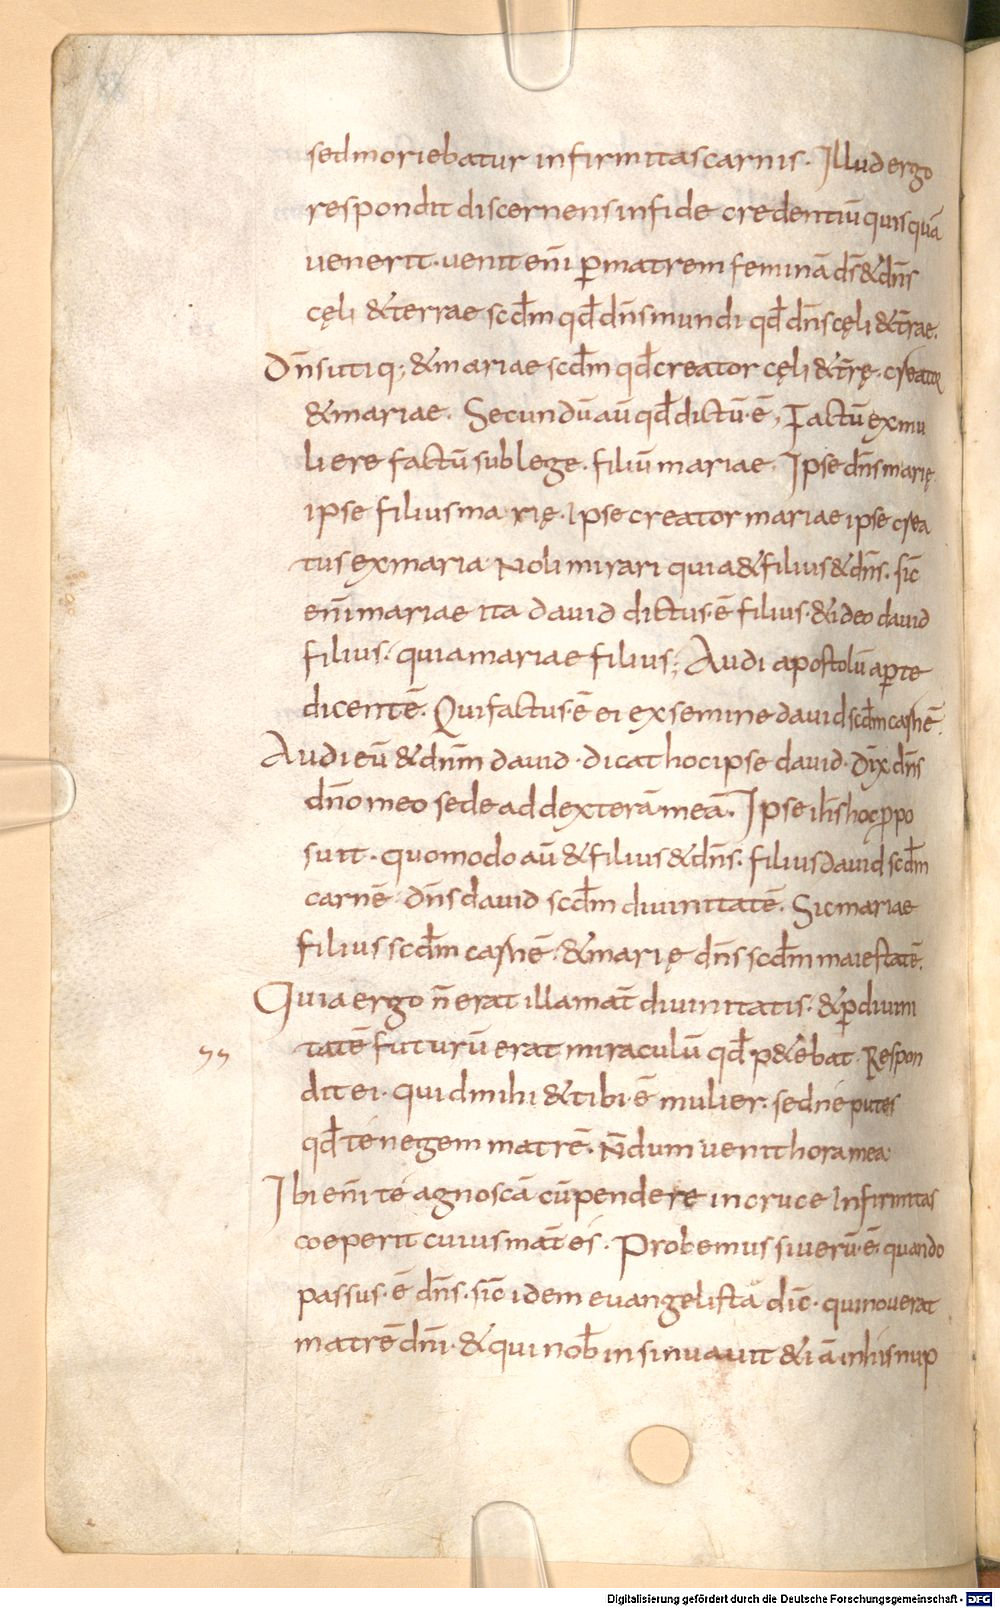 sed moriebatur infirmitas carnis. Illud ergo
respondit discernens in fide credentiū quis quā
venerit. venit enī p̄ matrem feminā dS̄ & dn̄s
cęli & terrae scd̄m qd̄ dn̄s mundi qd̄ dn̄s cęli & tr̄ae.
Dn̄s utiq; & mariae scd̄m qd̄ creator cęli & tr̄ę. creator
& mariae. Secundū aū qd̄ dictū ē, Factū ex mu
liere factū sub lege. filiū mariae. Ipse dn̄s marię
ipse filius marię. Ipse creator mariae ipse crea
tus ex maria Noli mirari quia & filius & dn̄s. sic̄
enī mariae ita david dictus ē filius. & ideo david
filius. quia mariae filius; Audi apostolū ap̄te
dicentē. Qui factus ē ei ex semine david scd̄m carnē.
Audi eū & dn̄m david. dicat hoc ipse david. Dix̄ dn̄s
dn̄o meo sede ad dexterā meā. Ipse ih̄s hoc ppo
suit. quomodo aū & filius & dn̄s. filius david scd̄m
carnē. Dn̄s david scd̄m divinitatē. Sic mariae
filius scd̄m carnē. & marię dn̄s scd̄m maiestatē.
Quia ergo n̄ erat illa mat̄ divinitatis. & p̄ divini
tatē futurū erat miraculū qd̄ p&ebat. Respon
dit ei. quid mihi & tibi ē mulier. sed ne putes
qd̄ te negem matrē. N̄dum venit hora mea
Ibi enī te agnoscā cū pendere in cruce Infirmitas
coeperit cuius mat̄ es. Probemus si verū ē. quando
passus ē dn̄s. sic̄ idem evangelista dic̄. qui noverat
matrē dn̄i. & qui nob̄ insinuavit & iā in his nup
Digitalisierung gefördert durch die Deutsche Forschungsgemeinschaft - DFG